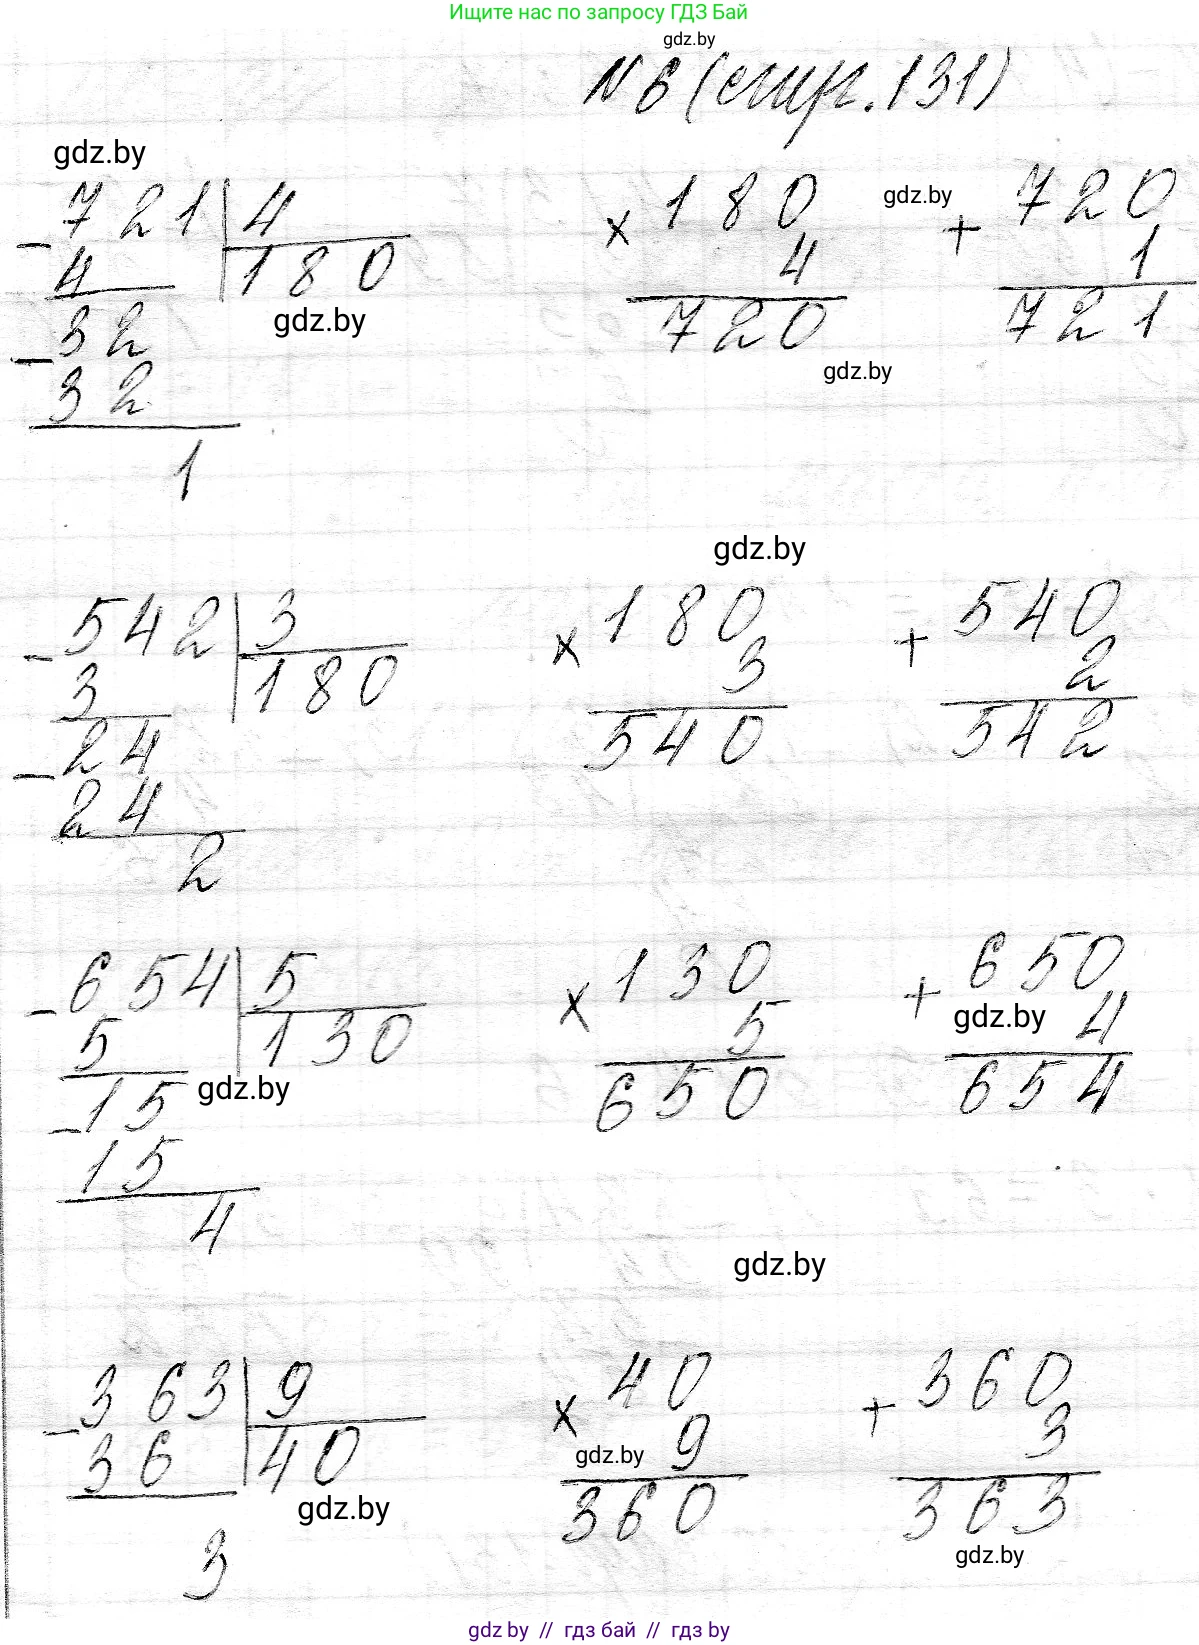 Ищите нас по запросу ГДЗ Бай
gdz.by
№6 (стр. 131)
gdz.by
- 721 | 4
4
180
- 32
32
1
gdz.by
× 180
4
720
gdz.by
gdz.by
+ 720
1
721
gdz.by
- 542 | 3
3
180
- 24
24
2
× 180
3
540
+ 540
2
542
- 654 | 5
5
130
- 15
15
4
gdz.by
× 130
5
650
+ 650
gdz.by
4
654
gdz.by
- 363 | 9
36
40
3
gdz.by
× 40
9
gdz.by
360
+ 360
3
363
gdz.by
gdz by // гдз бай // гдз by